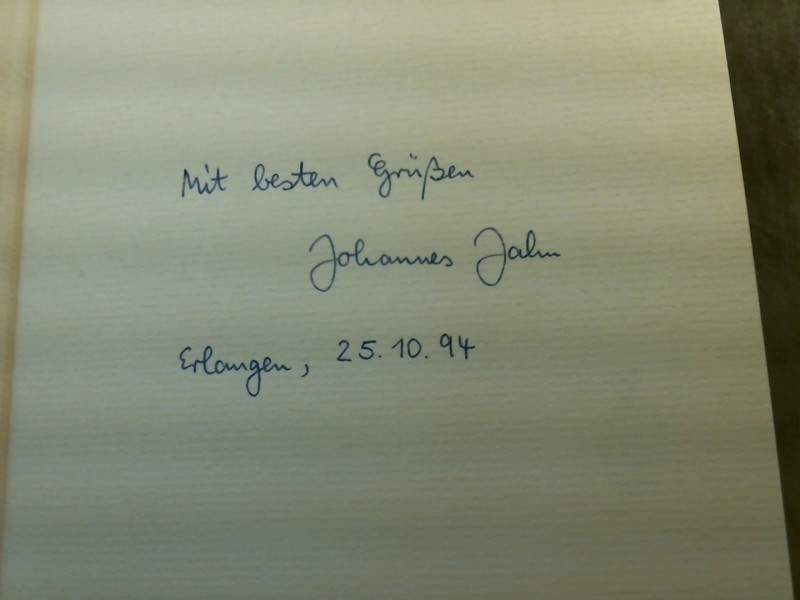 Mit besten Grüßen
Johannes Jahn
Erlangen, 25.10.94